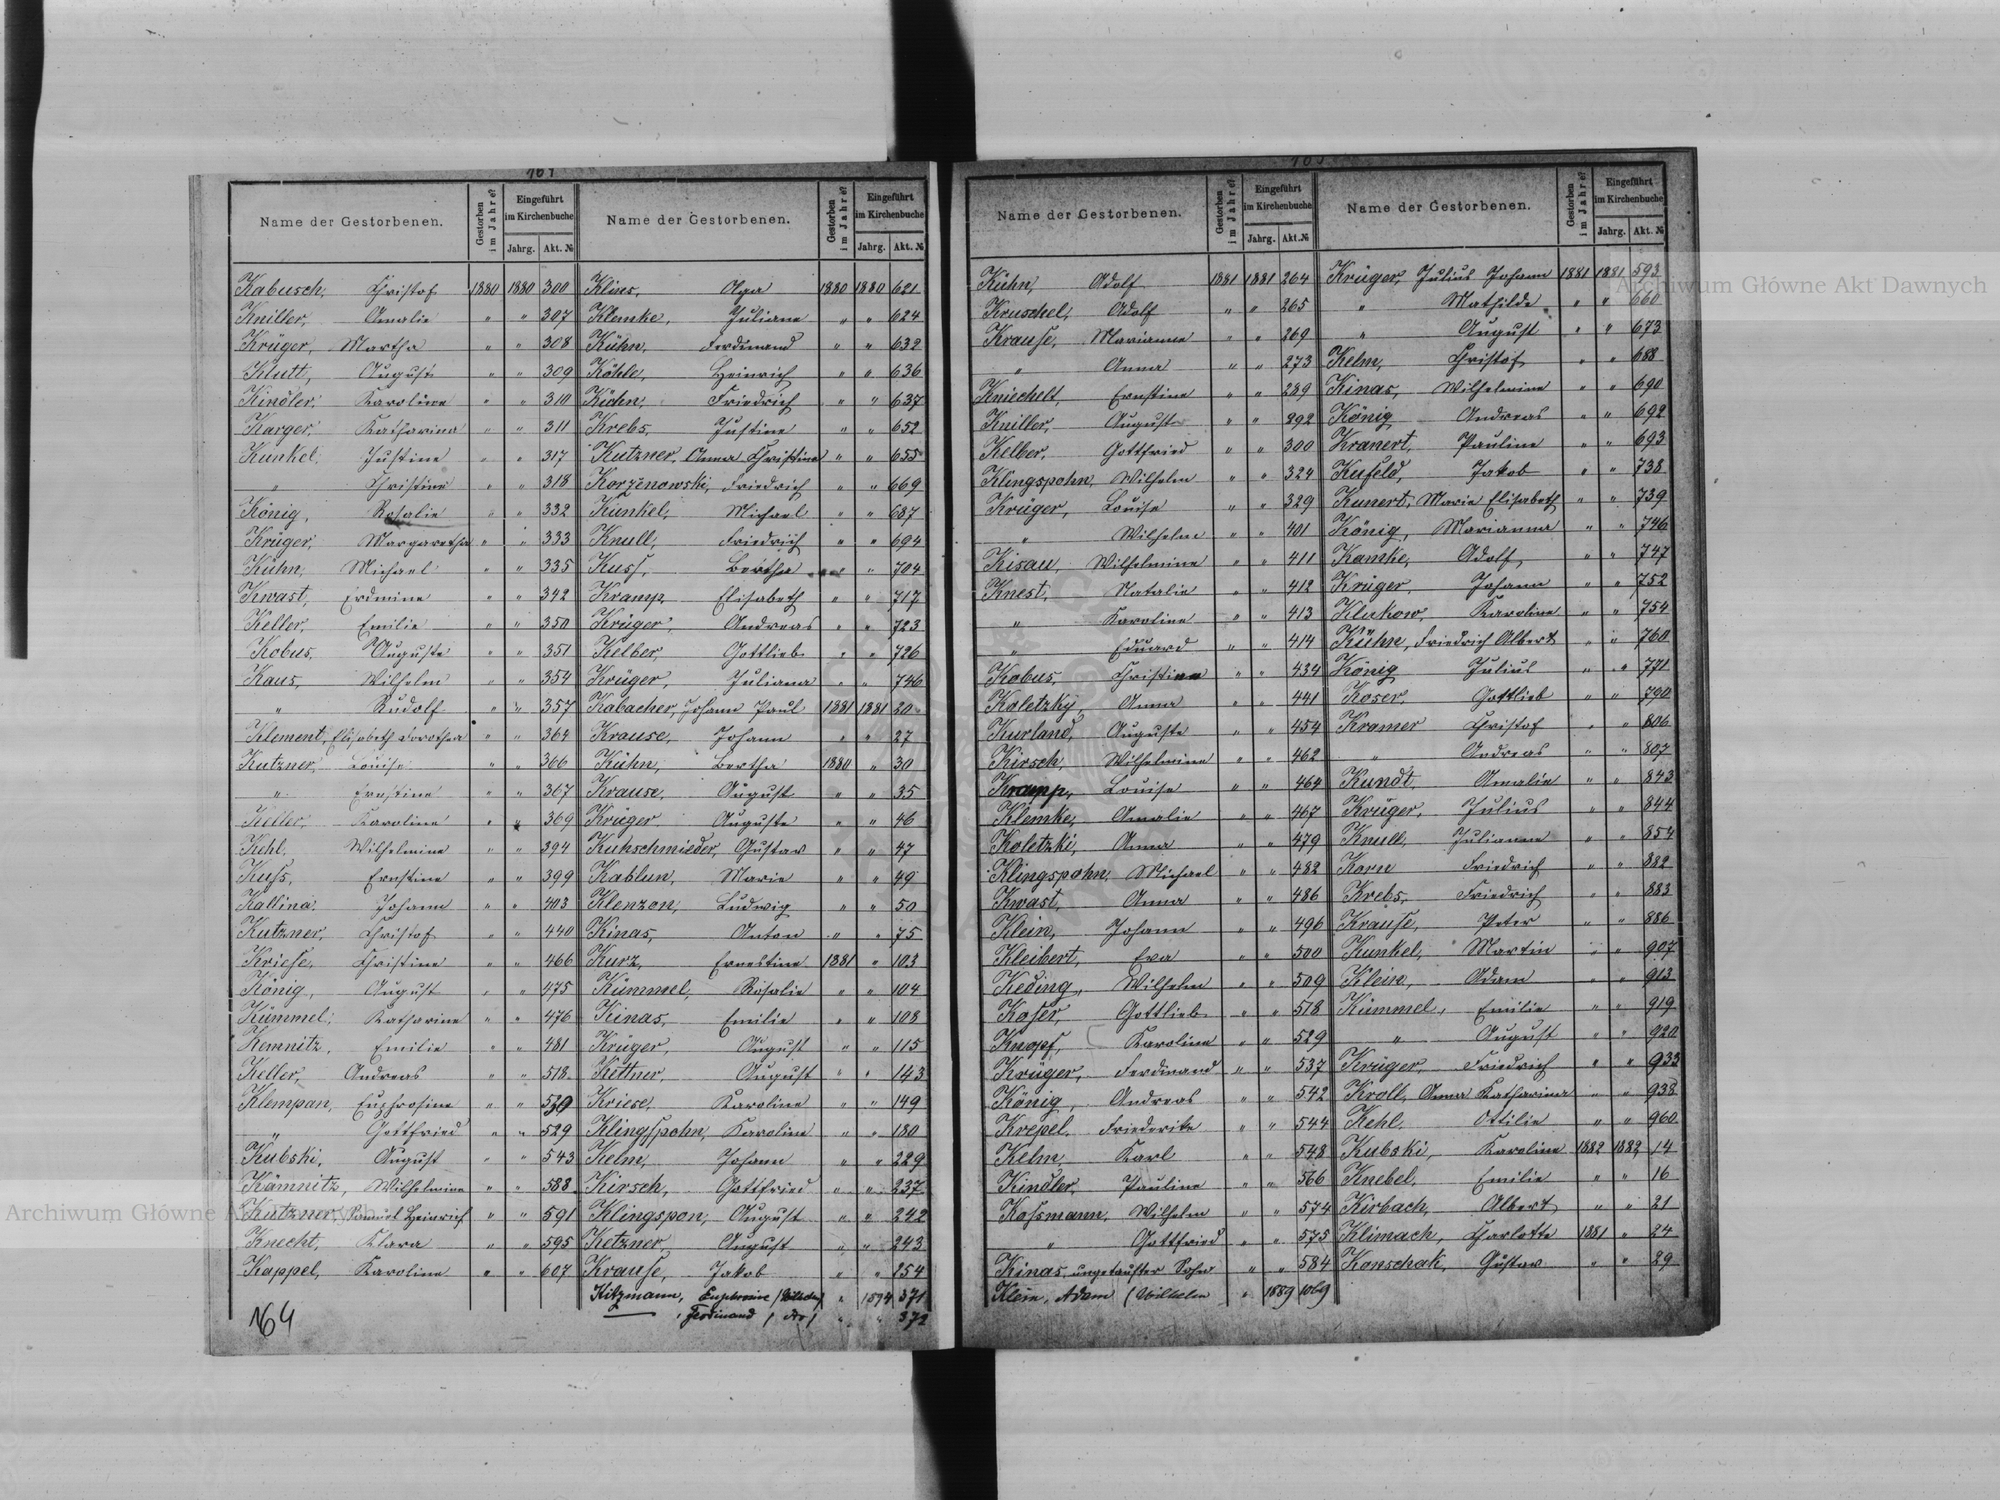 161
Name der Gestorbenen. Gestorben im Jahre? Eingeführt im Kirchenbuche Jahrg. Akt. №
Kabusch, Christof 1880 1880 300
Kniller, Amalie " " 307
Krüger, Martha " " 308
Klutt, August " " 309
Kindler, Karoline " " 310
Karger, Katharina " " 311
Kunkel, Justine " " 317
" Christine " " 318
König, Rosalie " " 332
Krüger, Margaretha " " 333
Kühn, Michael " " 335
Kwast, Erdmine " " 342
Keller, Emilie " " 350
Kobus, Auguste " " 351
Kaus, Wilhelm " " 354
" Rudolf " " 357
Klement, Elisabeth Dorothea " " 364
Kutzner, Louise " " 366
" Ernstine " " 367
Keller, Karoline " " 369
Kehl, Wilhelmine " " 394
Kuss, Ernstine " " 399
Kallina, Johann " " 403
Kutzner, Christof " " 440
Kriese, Christine " " 466
König, August " " 475
Kümmel, Katharine " " 476
Kemnitz, Emilie " " 481
Keller, Andreas " " 518
Klempan, Euphrosine " "
" Gottfried " " 529
Kubski, August " " 543
Kämnitz, Wilhelmine " " 588
Kutzner, Samuel Heinrich " " 591
Knecht, Klara " " 595
Kappel, Karoline " " 607
164
Name der Gestorbenen. Gestorben im Jahre? Eingeführt im Kirchenbuche Jahrg. Akt. №
Klins, Olga 1880 1880 621
Klemke, Juliane " " 624
Kühn, Ferdinand " " 632
Köhle, Heinrich " " 636
Kühn, Friedrich " " 637
Krebs, Justine " " 652
Kutzner, Anna Christine " " 655
Korzenowski, Friedrich " " 669
Kunkel, Michael " " 687
Knull, Friedrich " " 694
Kuss, Bertha " " 704
Kramp, Elisabeth " " 717
Krüger, Andreas " " 723
Kelber, Gottlieb " " 726
Krüger, Juliana " " 746
Kabacher, Johann Paul 1881 1881 20
Krause, Johann " " 27
Kühn, Bertha 1880 " 30
Krause, August " " 35
Krüger Auguste " " 46
Kuhschmieder, Gustav " " 47
Kablun, Marie " " 49
Klenzon, Ludwig " " 50
Kinas, Anton " " 75
Kurz, Ernestine 1881 " 103
Kümmel, Rosalie " " 104
Kinas, Emilie " " 108
Krüger, August " " 115
Kettner, August " " 143
Kriese, Karoline " " 149
Klingspohn, Karoline " " 180
Kelm, Johann " " 229
Kirsch, Gottfried " " 237
Klingspon, August " " 242
Ketzner August " " 243
Krause, Jakob " " 254
Kitzmann, Euphrosine " 1894 371
Ferdinand " " 372
Name der Gestorbenen. Gestorben im Jahre? Eingeführt im Kirchenbuche Jahrg. Akt. №
Kühn, Adolf 1881 1881 264
Kruschel, Adolf " " 265
Krause, Marianne " " 269
" Anna " " 273
Kniechelt, Ernstine " " 289
Kniller, August " " 292
Kelber, Gottfried " " 300
Klingspohn, Wilhelm " " 324
Krüger, Louise " " 329
" Wilhelm " " 401
Kisau, Wilhelmine " " 411
Knest, Natalie " " 412
" Karoline " " 413
" Eduard " " 414
Kobus, Christine " " 434
Koletzky, Anna " " 441
Kurland, Auguste " " 454
Kirsch, Wilhelmine " " 462
Kramp, Louise " " 464
Klemke, Amalie " " 467
Koletzki, Anna " " 479
Klingspohn, Michael " " 482
Kwast, Anna " " 486
Klein, Johann " " 496
Kleibert, Eva " " 500
Keding, Wilhelm " " 509
Koser, Gottlieb " " 518
Knopf, Karoline " " 529
Krüger, Ferdinand " " 537
König, Andreas " " 542
Krepel, Friederike " " 544
Kelm, Karl " " 548
Kindler, Pauline " " 566
Kossmann, Wilhelm " " 574
" Gottfried " " 575
Kinas, ungetaufter Sohn " " 584
Klein, Adam (Wilhelm " 1889 1069
Name der Gestorbenen. Gestorben im Jahre? Eingeführt im Kirchenbuche Jahrg. Akt. №
Krüger, Julius Johann 1881 1881 593
" Mathilde " " 660
" August " " 673
Kelm, Christof " " 688
Kinas, Wilhelmine " " 690
König Andreas " " 692
Kranert, Pauline " " 693
Kufeld, Jakob " " 738
Kunert, Marie Elisabeth " " 739
König, Marianna " " 746
Kamke, Adolf " " 747
Krüger, Johann " " 752
Klukow, Karoline " " 754
Kühn, Friedrich Albert " " 760
König Julius " " 771
Koser, Gottlieb " " 790
Kramer Christof " " 806
" Andreas " " 807
Kundt, Amalie " " 843
Krüger, Julius " " 844
Knull, Julianne " " 854
Korn Friedrich " " 882
Krebs, Friedrich " " 883
Krause, Peter " " 886
Kunkel, Martin " " 907
Klein, Adam " " 913
Kümmel, Emilie " " 919
" August " " 920
Krüger, Friedrich " " 935
Kroll, Anna Katharina " " 938
Kehl, Ottilie " " 960
Kubski, Karoline 1882 1882 14
Knebel, Emilie " " 16
Kirbach, Albert " " 21
Klimach, Charlotte 1881 " 24
Konschak, Gustav " " 29
Archiwum Główne Akt Dawnych
Archiwum Główne Akt Dawnych